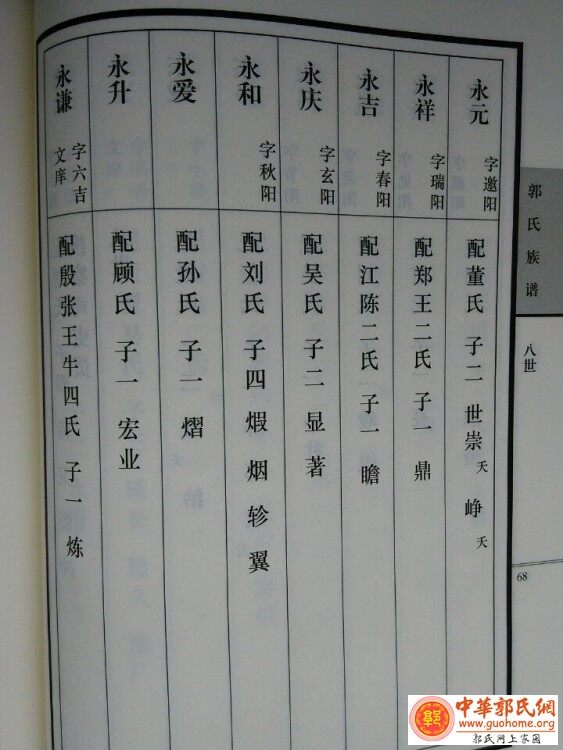 郭氏族谱
八世
68
永元
字邀阳
配董氏 子二 世崇 夭 峥 夭
永祥
字瑞阳
配郑王二氏 子一 鼎
永吉
字春阳
配江陈二氏 子一 瞻
永庆
字玄阳
配吴氏 子二 显著
永和
字秋阳
配刘氏 子四 煆 烟 轸 翼
永爱
配孙氏 子一 熠
永升
配顾氏 子一 宏业
永谦
字六吉
文庠
配殷张王牛四氏 子一 炼
郭
中華郭氏網
www.guohome.org
郭氏网上家园